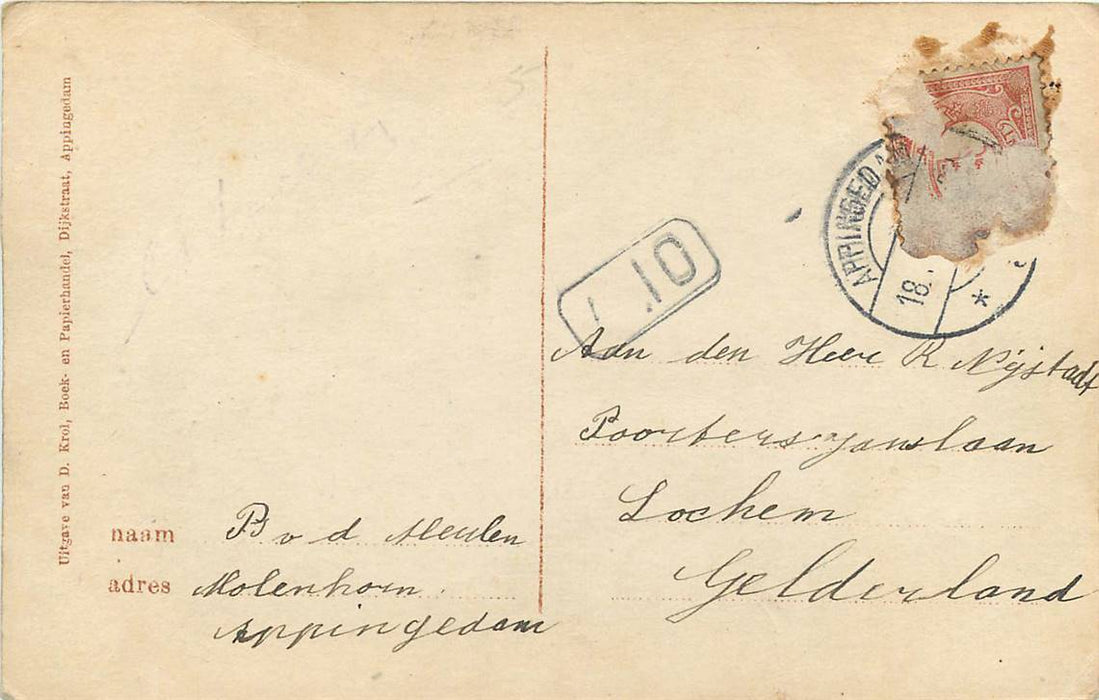 Uitgave van D. Krol, Boek- en Papierhandel, Dijkstraat, Appingedam
APPINGEDA
18.
10
Aan den Heer R Nijstadt
Poorters Janslaan
Lochem
Gelderland
naam B v d Meulen
adres Molenhorn
Appingedam